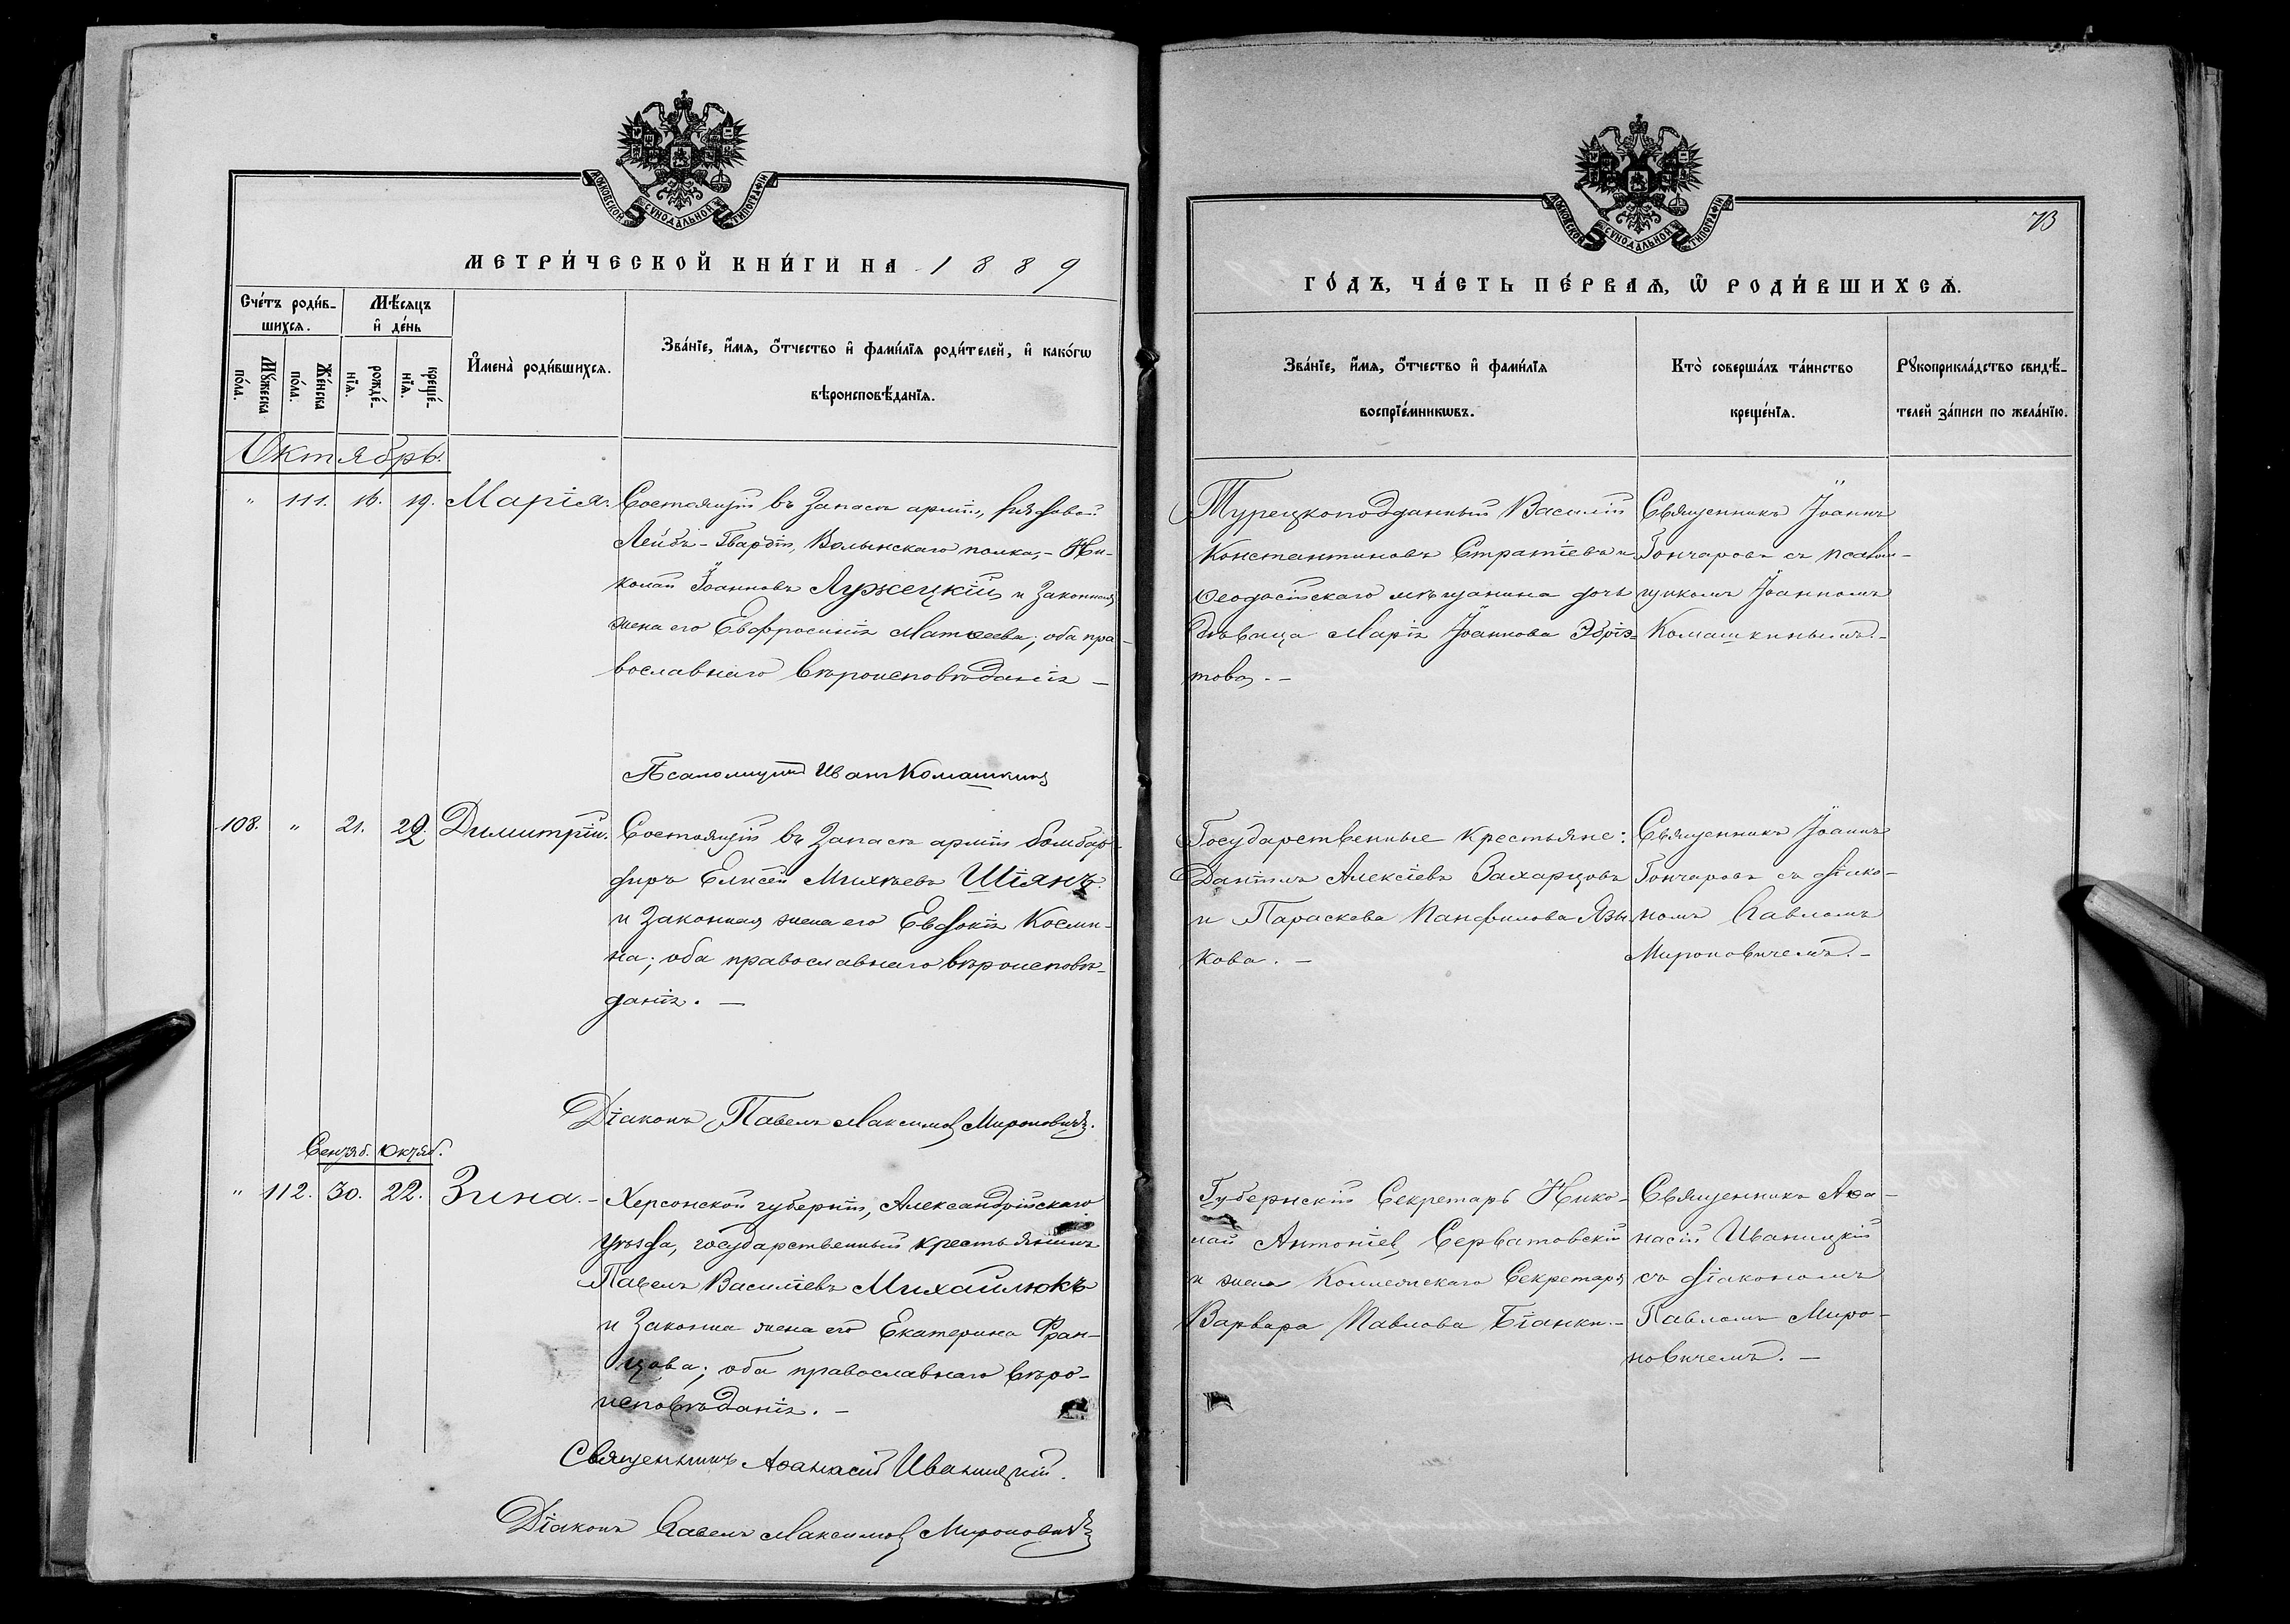 МОСКОВСКОЙ СУНОДАЛЬНОЙ ТИПОГРАФІИ
МЕТРИ́ЧЕСКОЙ КНИ́ГИ НА 1889
Сче́тъ роди́в-
шихсѧ.
Мѣ́сѧцъ
и҆ де́нь
Мꙋ́жеска
по́ла.
Же́нска
по́ла.
рожде́-
нїѧ.
креще́-
нїѧ.
И҆мена̀ роди́вшихсѧ.
Зва́нїе, и҆́мѧ, ѻ҆́тчество и҆ фами́лїѧ роди́телей, и҆ како́гѡ
вѣроисповѣ́данїѧ.
Октябрь.
" 111. 16. 19. Марія. Состоящій въ Запасѣ арміи, рядовой
Лейбъ-Гвардіи, Волынскаго полка,- Ни-
колай Іоанновъ Лужецкій и Законная
жена его Евфросинія Матѳеева; оба пра-
вославнаго вѣроисповѣданія -
Псаломщикъ Иванъ Комашкинъ
108. " 21. 22. Димитрій. Состоящій въ Запасѣ арміи бомбар-
диръ Елисей Михѣевъ Шіянъ
и Законная жена его Евдокія Косми-
на; оба православнаго вѣроисповѣ-
данія. -
Діаконъ Павелъ Максимовъ Мироновичъ.
Сентяб. Октяб.
" 112. 30. 22. Зина. - Херсонской губерніи, Александрійскаго
уѣзда, государственный крестьянинъ
Павелъ Василіевъ Михайлюкъ
и Законна жена его Екатерина Фран-
цова; оба православнаго вѣро-
исповѣданія. -
Священникъ Аѳанасій Иваницкій.
Діаконъ Павелъ Максимовъ Мироновичъ
МОСКОВСКОЙ СУНОДАЛЬНОЙ ТИПОГРАФІИ
73
ГО́ДЪ, ЧА́СТЬ ПЕ́РВАѦ, Ѡ҆ РОДИ́ВШИХСѦ.
Зва́нїе, и҆́мѧ, ѻ҆́тчество и҆ фами́лїѧ
воспрїе́мникѡвъ.
Кто̀ соверша́лъ та́инство
креще́нїѧ.
Рꙋкоприкла́дство свидѣ́-
телей за́писи по жела́нїю.
Турецкоподданный Василій
Константиновъ Стратіевъ и
Ѳеодосійскаго мѣщанина дочь
дѣвица Марія Іоаннова Эбріэ-
това. -
Священникъ Іоаннъ
Гончаровъ съ псалом-
щикомъ Іоанномъ
Комашкинымъ. -
Государственные крестьяне:
Даніилъ Алексіевъ Захарцовъ
и Параскева Панфилова Язы
кова. -
Священникъ Іоаннъ
Гончаровъ съ діако-
номъ Павломъ
Мироновичемъ. -
Губернскій Секретарь Нико-
лай Антоніев Серватовскій
и жена Коллежскаго Секретаря
Варвара Павлова Біанки. -
Священникъ Аѳа-
насій Иваницкій
съ діакономъ
Павломъ Миро-
новичемъ. -